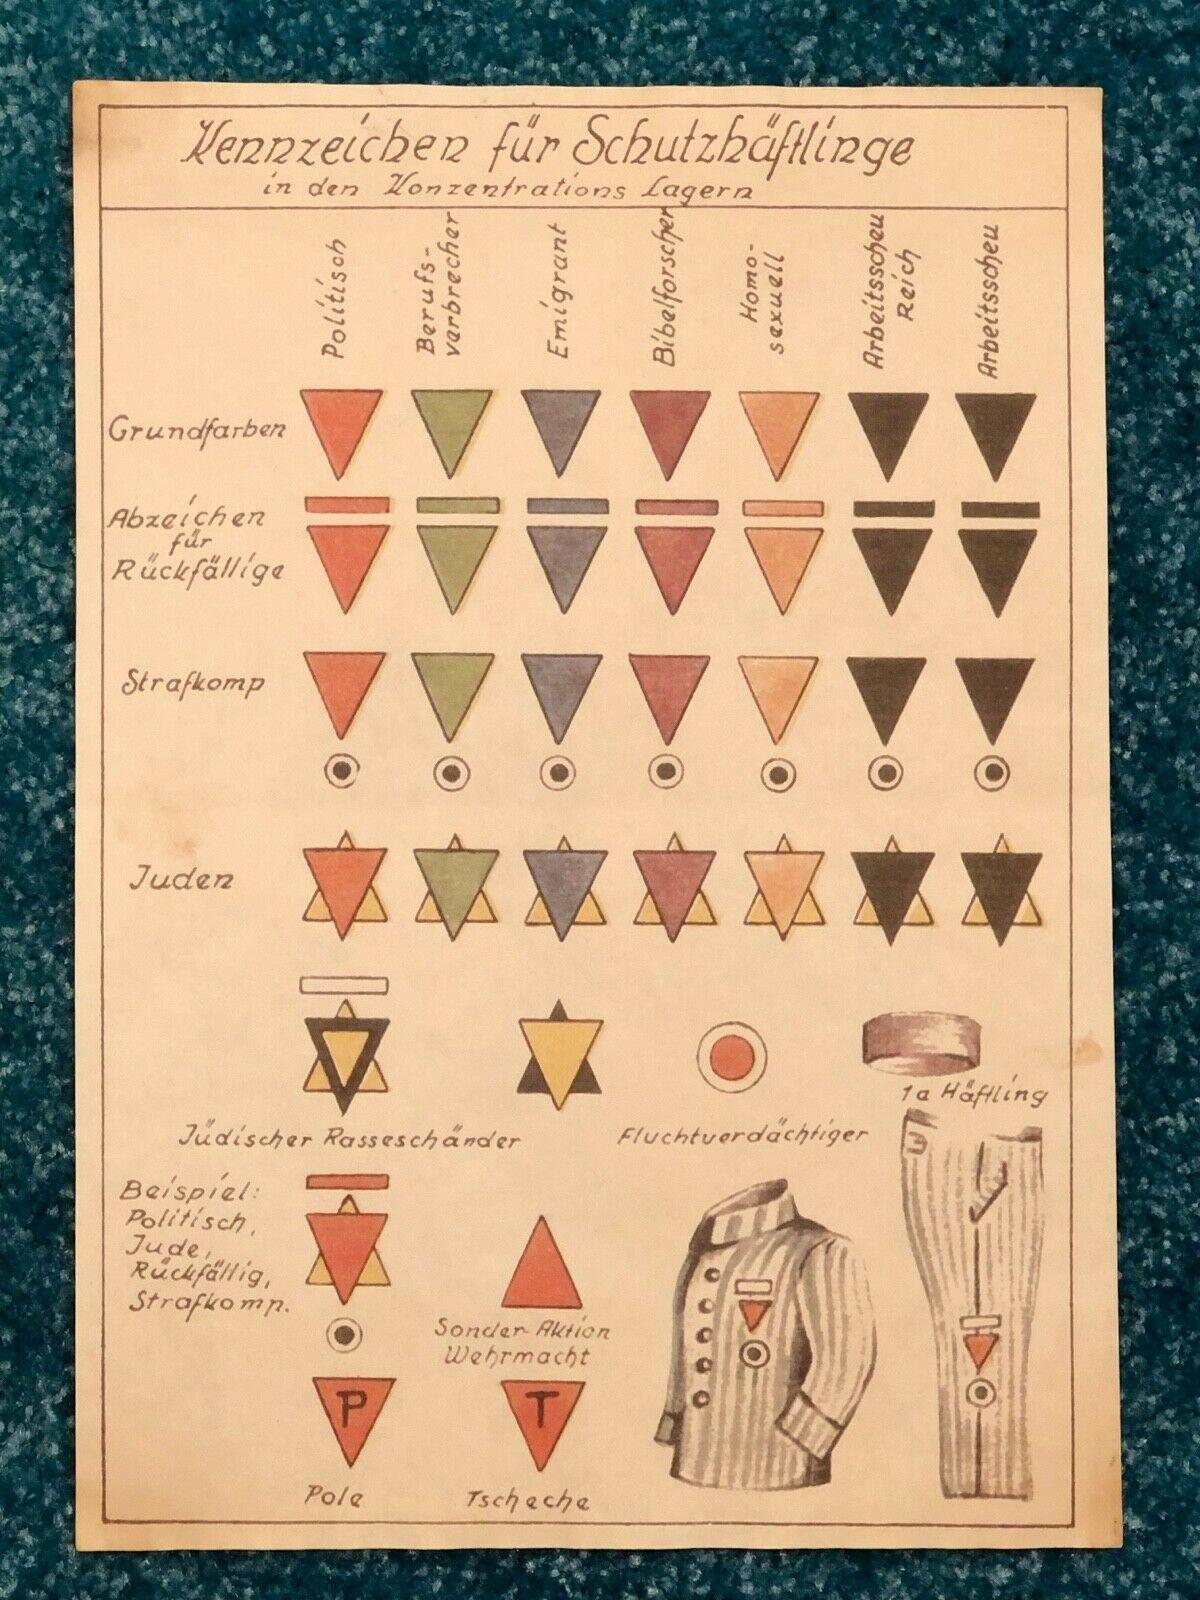 Kennzeichen für Schutzhäftlinge
in den Konzentrations Lagern
Politisch
Berufs-
verbrecher
Emigrant
Bibelforscher
Homo-
sexuell
Arbeitsscheu
Reich
Arbeitsscheu
Grundfarben
Abzeichen
für
Rückfällige
Strafkomp
Juden
Jüdischer Rasseschänder
Fluchtverdächtiger
1a Häftling
Beispiel:
Politisch,
Jude,
Rückfällig,
Strafkomp.
Sonder-Aktion
Wehrmacht
P
T
Pole
Tscheche